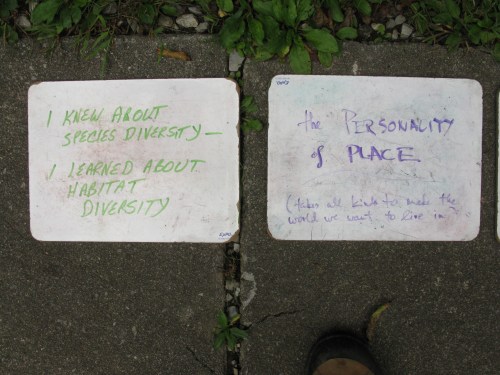 I KNEW ABOUT
SPECIES DIVERSITY —
I LEARNED ABOUT
HABITAT
DIVERSITY
the PERSONALITY
of PLACE
(takes all kinds to make the
world we want to live in